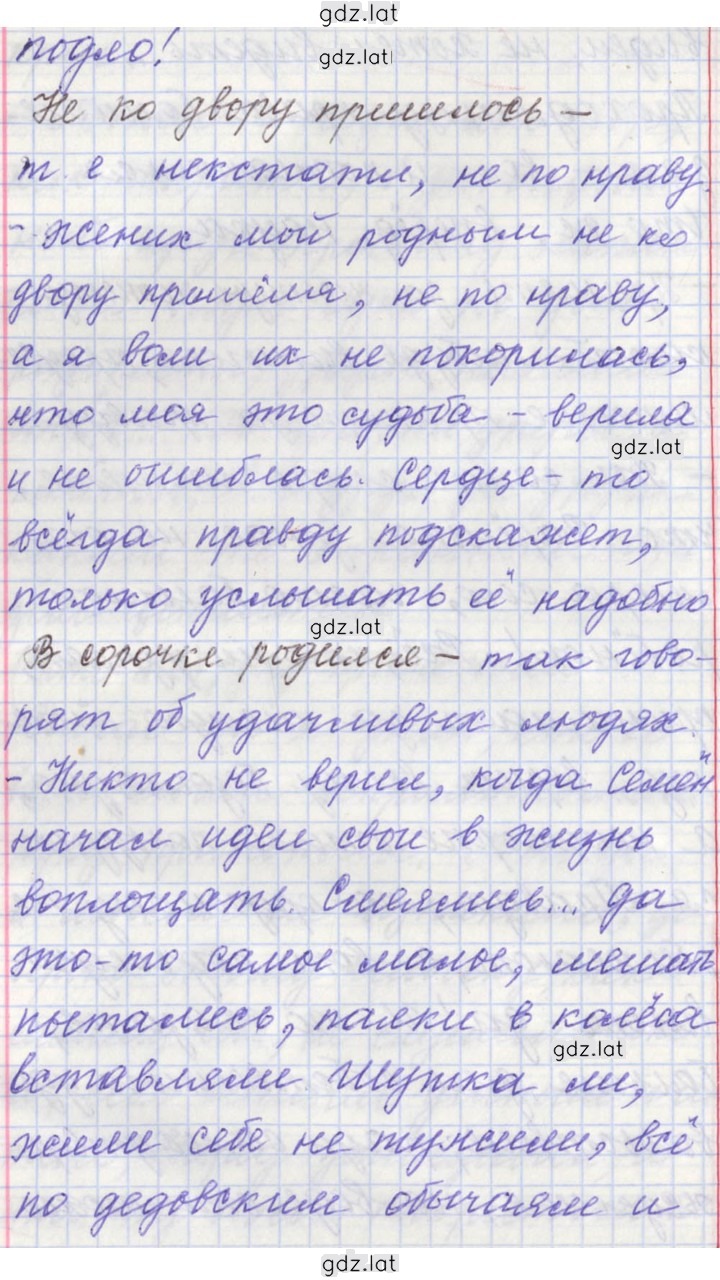 gdz.lat
подло!
gdz.lat
Не ко двору пришлось –
т. е некстати, не по нраву.
- жених мой родным не ко
двору пришёлся, не по нраву,
а я воли их не покорилась,
что моя это судьба - верила
gdz.lat
и не ошиблась. Сердце-то
всегда правду подскажет,
только услышать её надобно
gdz.lat
В сорочке родился – так гово-
рят об удачливых людях.
- Никто не верил, когда Семён
начал идеи свои в жизнь
воплощать. Смеялись... да
это-то самое малое, мешать
пытались, палки в колёса
gdz.lat
вставляли. Шутка ли,
жили себе не тужили, всё
по дедовским обычаям и
gdz.lat